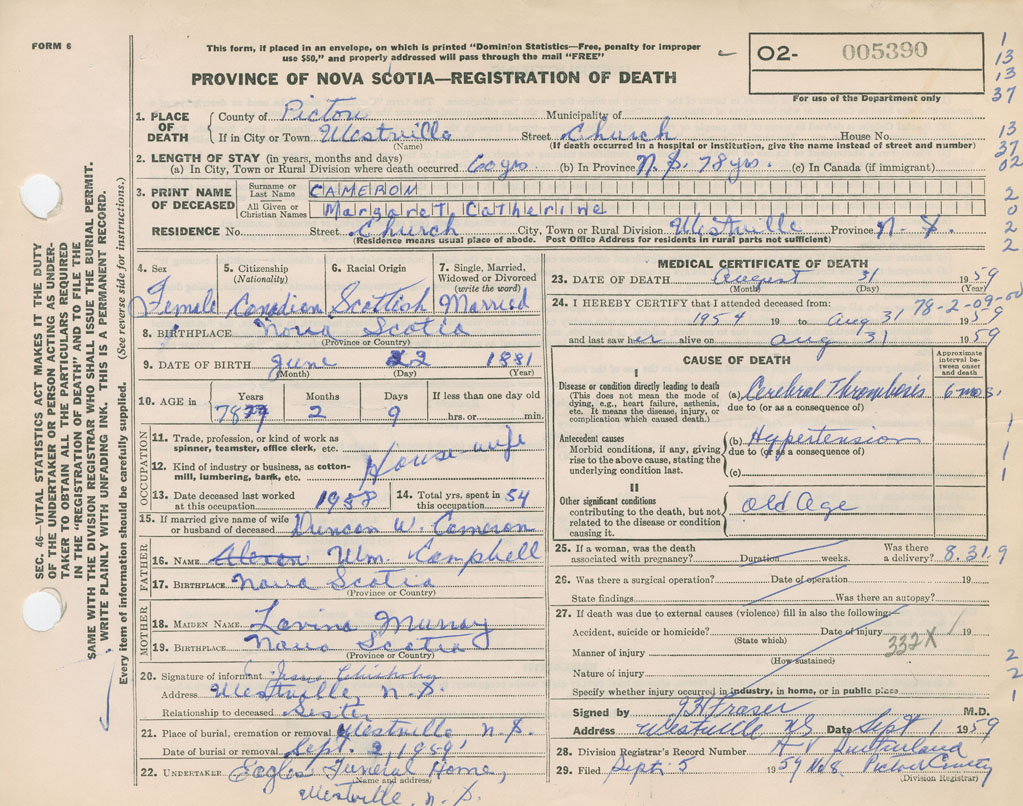 FORM 6
This form, if placed in an envelope, on which is printed "Dominion Statistics—Free, penalty for improper
use $50," and properly addressed will pass through the mail "FREE"
PROVINCE OF NOVA SCOTIA—REGISTRATION OF DEATH
O2- 005390
For use of the Department only
1
13
13
37
13
37
02
2
0
2
2
1. PLACE OF DEATH
County of Pictou Municipality of
If in City or Town Westville Street Church House No.
(Name) (If death occurred in a hospital or institution, give the name instead of street and number)
2. LENGTH OF STAY (in years, months and days)
(a) In City, Town or Rural Division where death occurred 60 yrs. (b) In Province N.S. 78 yrs. (c) In Canada (if immigrant)
3. PRINT NAME OF DECEASED
Surname or Last Name CAMERON
All Given or Christian Names Margaret Catherine
RESIDENCE No. Street Church City, Town or Rural Division Westville Province N.S.
(Residence means usual place of abode. Post Office Address for residents in rural parts not sufficient)
SEC. 46—VITAL STATISTICS ACT MAKES IT THE DUTY
OF THE UNDERTAKER OR PERSON ACTING AS UNDER-
TAKER TO OBTAIN ALL THE PARTICULARS REQUIRED
IN THE "REGISTRATION OF DEATH" AND TO FILE THE
SAME WITH THE DIVISION REGISTRAR WHO SHALL ISSUE THE BURIAL PERMIT.
WRITE PLAINLY WITH UNFADING INK. THIS IS A PERMANENT RECORD.
Every item of information should be carefully supplied. (See reverse side for instructions.)
4. Sex 5. Citizenship (Nationality) 6. Racial Origin 7. Single, Married, Widowed or Divorced (write the word)
Female Canadian Scottish Married
8. BIRTHPLACE Nova Scotia
(Province or Country)
9. DATE OF BIRTH June 22 1881
(Month) (Day) (Year)
10. AGE in Years Months Days If less than one day old
78 2 9 hrs. or min.
OCCUPATION
11. Trade, profession, or kind of work as
spinner, teamster, office clerk, etc. House wife
12. Kind of industry or business, as cotton-
mill, lumbering, bank, etc.
13. Date deceased last worked at this occupation 1958 14. Total yrs. spent in this occupation 54
15. If married give name of wife or husband of deceased Duncan W. Cameron
FATHER
16. NAME Wm. Campbell
17. BIRTHPLACE Nova Scotia
(Province or Country)
MOTHER
18. MAIDEN NAME Lavina Murray
19. BIRTHPLACE Nova Scotia
(Province or Country)
20. Signature of informant Jessie Chisholm
Address Westville, N.S.
Relationship to deceased Sister
21. Place of burial, cremation or removal Westville N.S.
Date of burial or removal Sept. 2, 1959
22. UNDERTAKER Eagles Funeral Home,
(Name and address)
Westville, N.S.
MEDICAL CERTIFICATE OF DEATH
23. DATE OF DEATH August 31 1959
(Month) (Day) (Year)
24. I HEREBY CERTIFY that I attended deceased from: 78-2-09-00
1954 19 to Aug 31 1959
and last saw her alive on Aug 31 1959
CAUSE OF DEATH
Approximate interval between onset and death
I
Disease or condition directly leading to death
(This does not mean the mode of
dying, e.g., heart failure, asthenia,
etc. It means the disease, injury, or
complication which caused death.)
(a) Cerebral Thrombosis 6 mos.
due to (or as a consequence of)
Antecedent causes
Morbid conditions, if any, giving
rise to the above cause, stating the
underlying condition last.
(b) Hypertension
due to (or as a consequence of)
(c)
1
1
1
II
Other significant conditions
contributing to the death, but not
related to the disease or condition
causing it.
Old Age
25. If a woman, was the death associated with pregnancy? Duration weeks. Was there a delivery? 8.31.9
26. Was there a surgical operation? Date of operation 19
State findings Was there an autopsy?
27. If death was due to external causes (violence) fill in also the following:
Accident, suicide or homicide? Date of injury 19
(State which)
332X
Manner of injury
(How sustained)
Nature of injury
Specify whether injury occurred in industry, in home, or in public place
2
2
1
Signed by J H Fraser M.D.
Address Westville NS Date Sept 1 1959
28. Division Registrar's Record Number
29. Filed Sept. 5 1959 No 8. Pictou County
(Division Registrar)